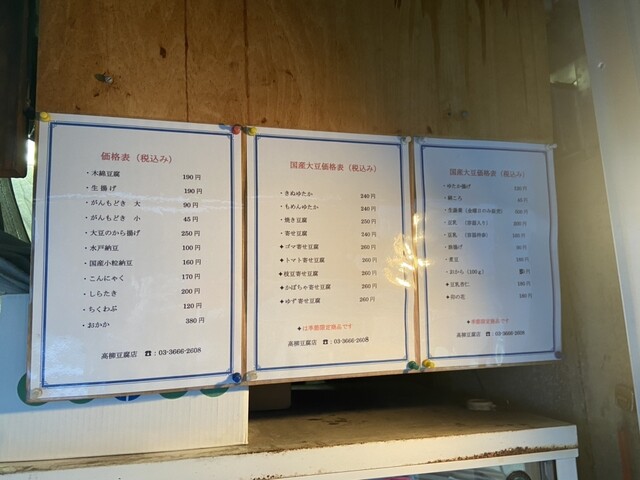 価格表（税込み）
・木綿豆腐 190 円
・生揚げ 190 円
・がんもどき 大 90 円
・がんもどき 小 45 円
・大豆のから揚げ 250 円
・水戸納豆 100 円
・国産小粒納豆 160 円
・こんにゃく 170 円
・しらたき 200 円
・ちくわぶ 120 円
・おかか 380 円
高柳豆腐店 ☎：03-3666-2608
国産大豆価格表（税込み）
・きぬゆたか 240 円
・もめんゆたか 240 円
・焼き豆腐 250 円
・寄せ豆腐 240 円
✦ゴマ寄せ豆腐 260 円
✦トマト寄せ豆腐 260 円
✦枝豆寄せ豆腐 260 円
✦かぼちゃ寄せ豆腐 260 円
✦ゆず寄せ豆腐 260 円
✦は季節限定商品です
高柳豆腐店 ☎：03-3666-2608
国産大豆価格表（税込み）
・ゆたか揚げ 円
・絹ころ 円
・生湯葉（金曜日のみ販売） 円
・豆乳 （容器入り） 円
・豆乳 （容器持参） 円
・油揚げ 円
・煮豆 円
・おから（100g） 円
✦豆乳杏仁 円
✦卯の花 円
✦季節限定商品です
高柳豆腐店 ☎：03-3666-2608